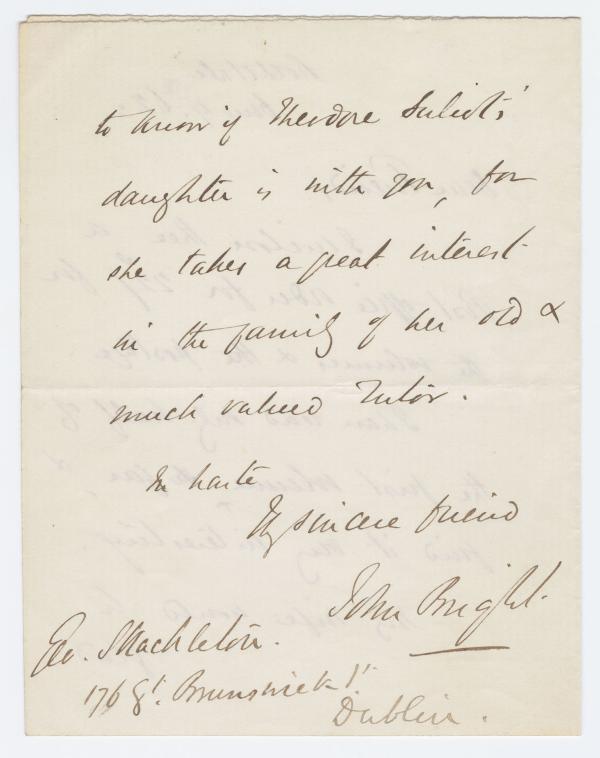 to know if Theodore Suliot's
daughter is with you, for
she takes a great interest
in the family of her old &
much valued Tutor.
In haste
Thy sincere friend
John Bright.
Geo. Shackleton.
176 Gt. Brunswick St.
Dublin.